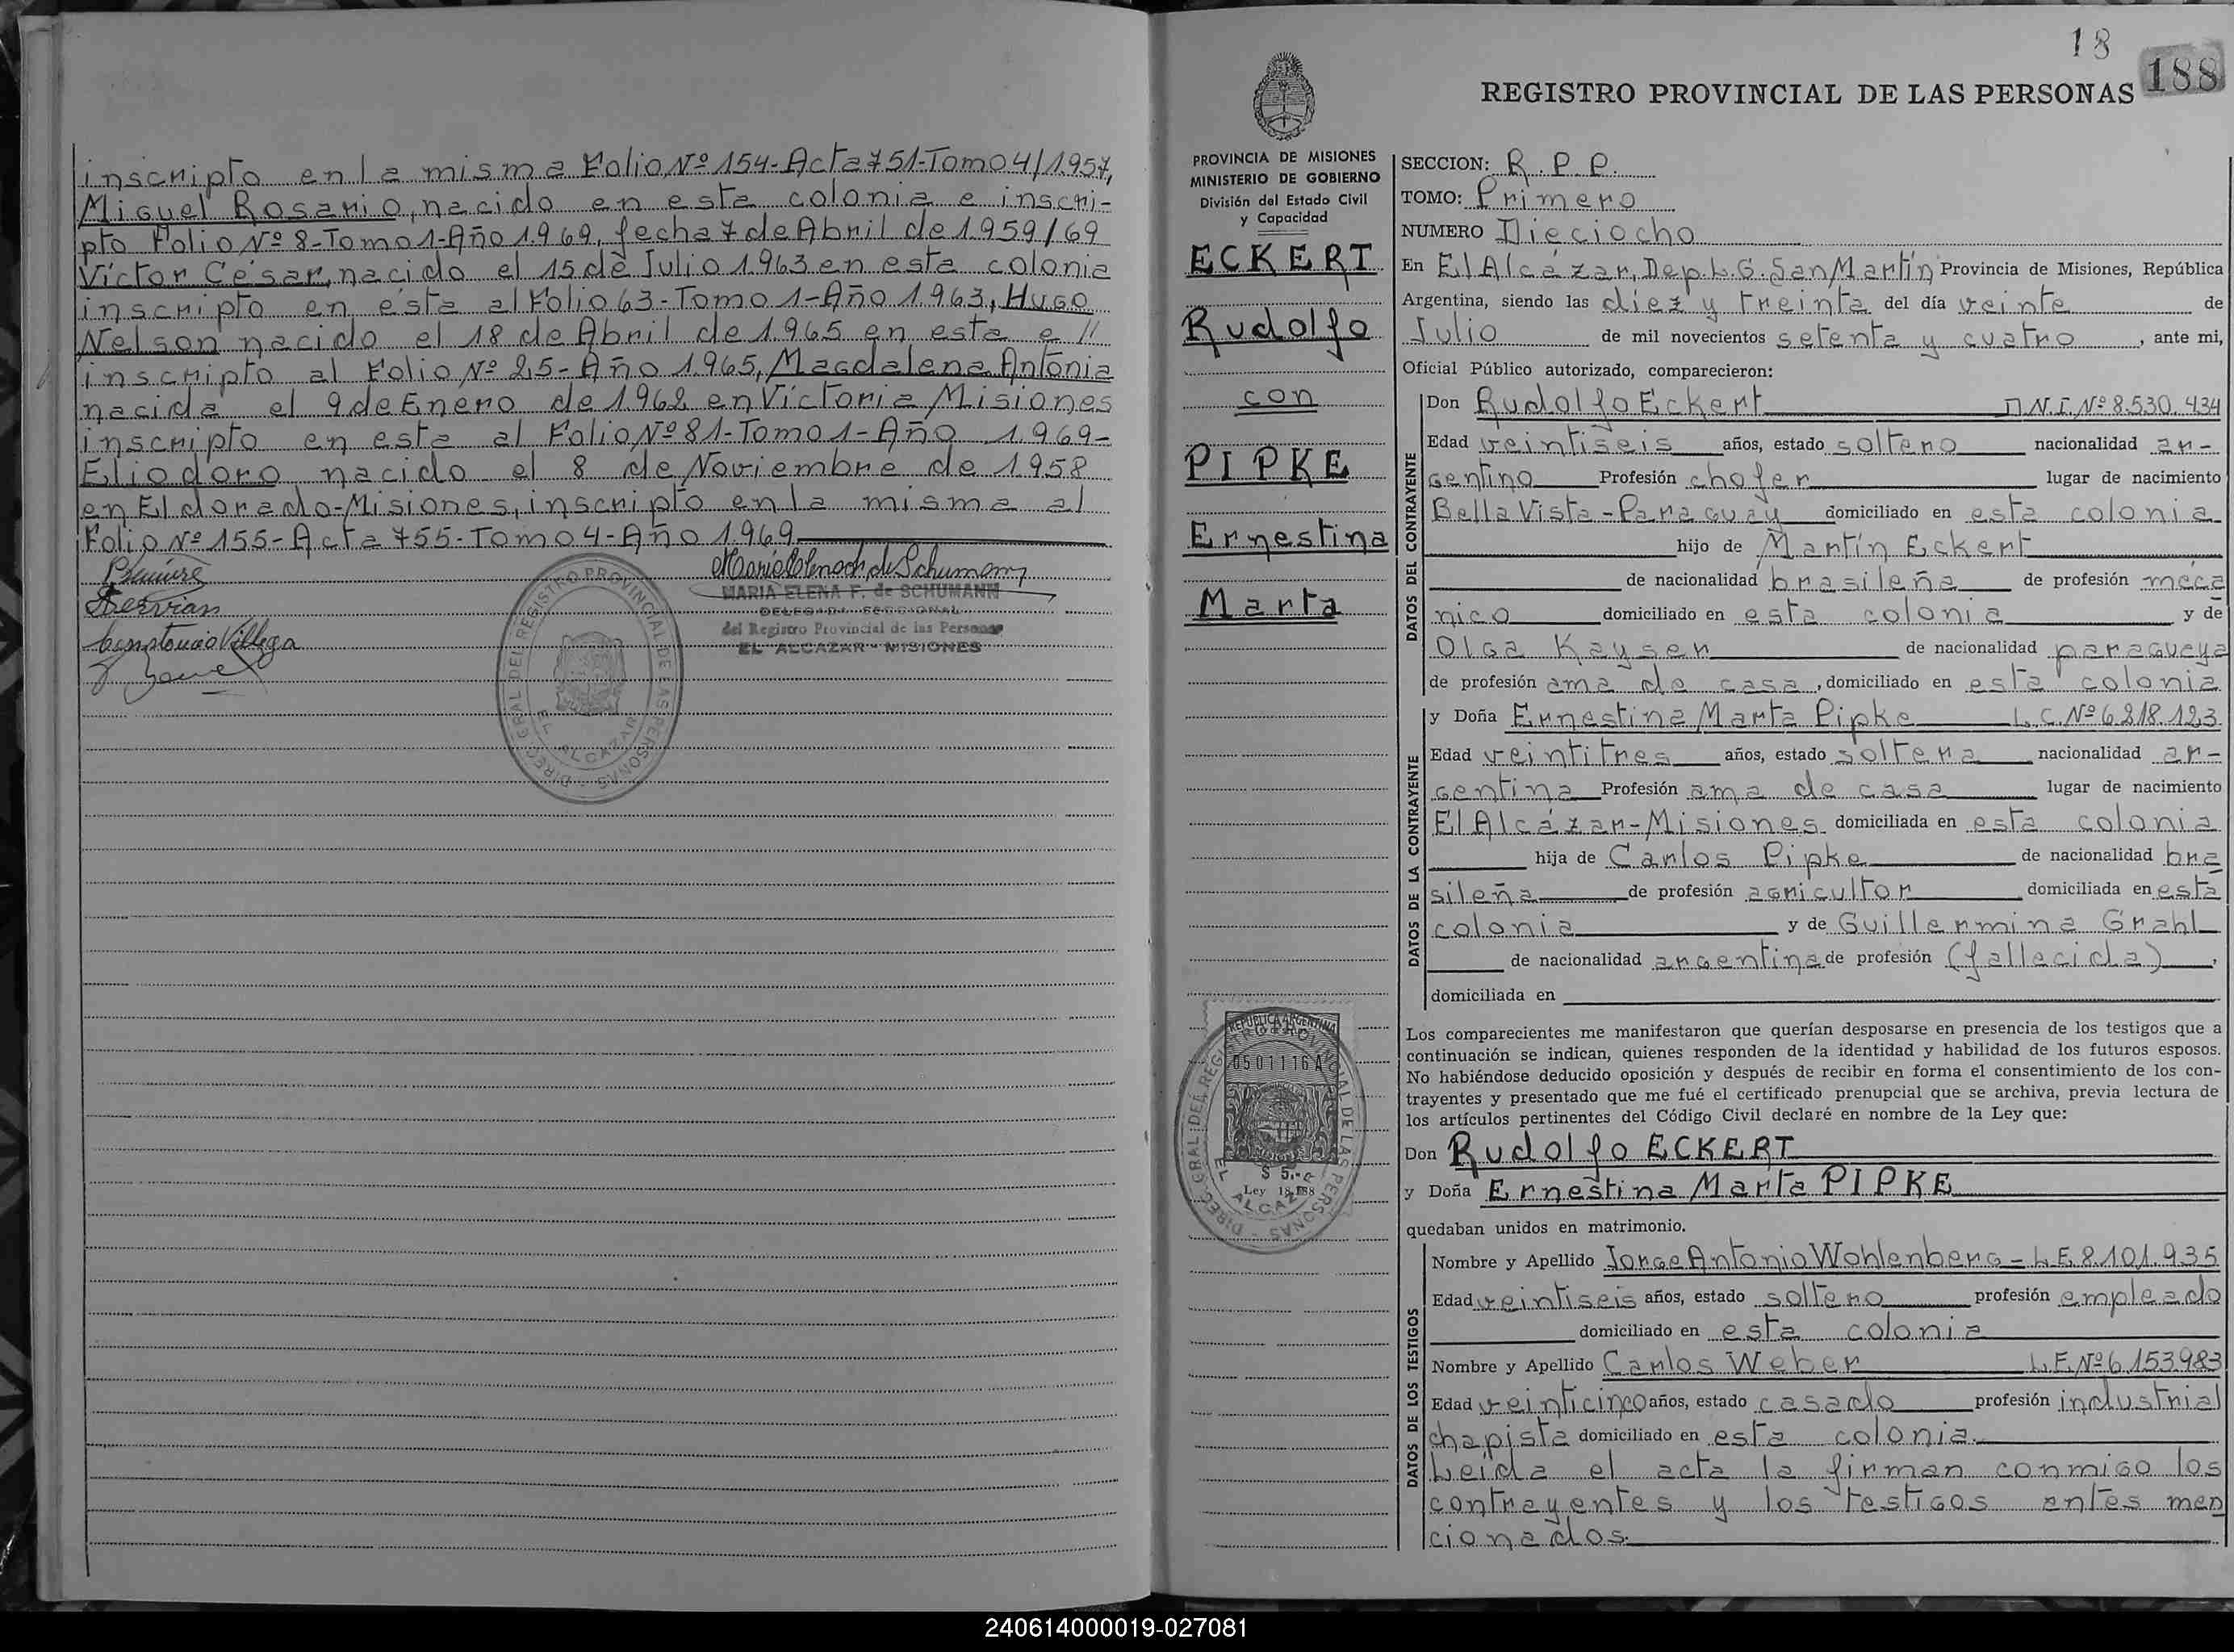 inscripto en la misma Folio Nº 154-Acta 751-Tomo 4/1957,
Miguel Rosario, nacido en esta colonia e inscri-
pto Folio Nº 8-Tomo 1-Año 1969, fecha 7 de Abril de 1959/69
Víctor César, nacido el 15 de Julio 1963 en esta colonia
inscripto en ésta al Folio 63-Tomo 1-Año 1963, Hugo
Nelson nacido el 18 de Abril de 1965 en esta e //
inscripto al Folio Nº 25-Año 1965, Magdalena Antonia
nacida el 9 de Enero de 1962 en Victoria Misiones
inscripto en esta al Folio Nº 81-Tomo 1-Año 1969-
Eliodoro nacido el 8 de Noviembre de 1958
en Eldorado-Misiones, inscripto en la misma al
Folio Nº 155-Acta 755-Tomo 4-Año 1969
MARIA ELENA F. de SCHUMANN
DELEGADA SECCIONAL
del Registro Provincial de las Personas
EL ALCAZAR - MISIONES
Servian
Constancio Villega
DIREC. GRAL DEL REGISTRO PROVINCIAL DE LAS PERSONAS
EL ALCAZAR
18
188
REGISTRO PROVINCIAL DE LAS PERSONAS
PROVINCIA DE MISIONES
MINISTERIO DE GOBIERNO
División del Estado Civil
y Capacidad
ECKERT
Rudolfo
con
PIPKE
Ernestina
Marta
REPUBLICA ARGENTINA
0501116A
$ 5.-
Ley 18.188
DIREC. GRAL DEL REGISTRO PROVINCIAL DE LAS PERSONAS
EL ALCAZAR
SECCION: R.P.P.
TOMO: Primero
NUMERO Dieciocho
En El Alcázar, Dep. L.G. San Martín Provincia de Misiones, República
Argentina, siendo las diez y treinta del día veinte de
Julio de mil novecientos setenta y cuatro, ante mi,
Oficial Público autorizado, comparecieron:
DATOS DEL CONTRAYENTE
Don Rudolfo Eckert D.N.I. Nº 8.530.434
Edad veintiseis años, estado soltero nacionalidad ar-
gentino Profesión chofer lugar de nacimiento
Bella Vista-Paraguay domiciliado en esta colonia
hijo de Martín Eckert
de nacionalidad brasileña de profesión mecá
nico domiciliado en esta colonia y de
Olga Kayser de nacionalidad paraguaya
de profesión ama de casa, domiciliado en esta colonia
DATOS DE LA CONTRAYENTE
y Doña Ernestina Marta Pipke L.C. Nº 6.218.123
Edad veintitres años, estado soltera nacionalidad ar-
gentina Profesión ama de casa lugar de nacimiento
El Alcázar-Misiones domiciliada en esta colonia
hija de Carlos Pipke de nacionalidad bra
sileña de profesión agricultor domiciliada en esta
colonia y de Guillermina Grahl
de nacionalidad argentina de profesión (fallecida),
domiciliada en
Los comparecientes me manifestaron que querían desposarse en presencia de los testigos que a
continuación se indican, quienes responden de la identidad y habilidad de los futuros esposos.
No habiéndose deducido oposición y después de recibir en forma el consentimiento de los con-
trayentes y presentado que me fué el certificado prenupcial que se archiva, previa lectura de
los artículos pertinentes del Código Civil declaré en nombre de la Ley que:
Don Rudolfo ECKERT
y Doña Ernestina Marta PIPKE
quedaban unidos en matrimonio.
DATOS DE LOS TESTIGOS
Nombre y Apellido Jorge Antonio Wohlenberg - L.E. 8.101.935
Edad veintiseis años, estado soltero profesión empleado
domiciliado en esta colonia
Nombre y Apellido Carlos Weber L.E. Nº 6.153.983
Edad veinticinco años, estado casado profesión industrial
chapista domiciliado en esta colonia.
Leída el acta la firman conmigo los
contrayentes y los testigos antes men
cionados.
240614000019-027081